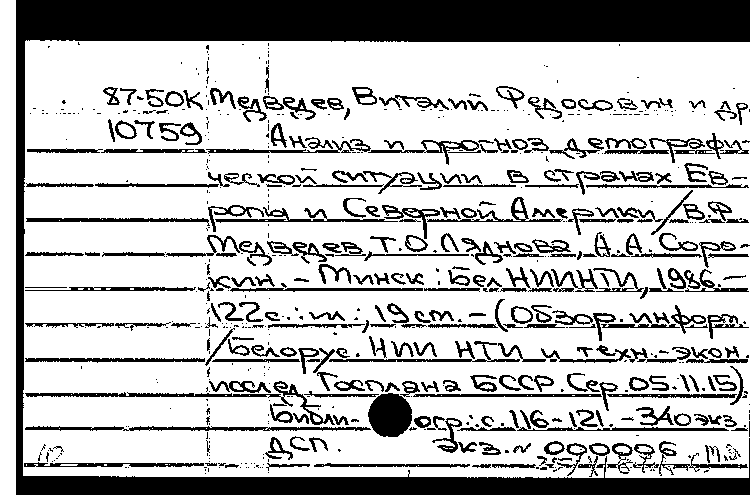 87-50К Медведев, Виталий Федосович и др
10759 Анализ и прогноз демографи-
ческой ситуации в странах Ев-
ропы и Северной Америки / В.Ф.
Медведев, Т.О. Ляднова, А.А. Соро-
кин. - Минск: Бел НИИНТИ, 1986. -
122с.: ил.; 19 см. - (Обзор. информ.
/ Белорус. НИИ НТИ и техн.-экон.
исслед. Госплана БССР. Сер. 05.11.15)
Библи- огр.: с. 116-121. - 340 экз.
ДСП. Экз. N 000006
10